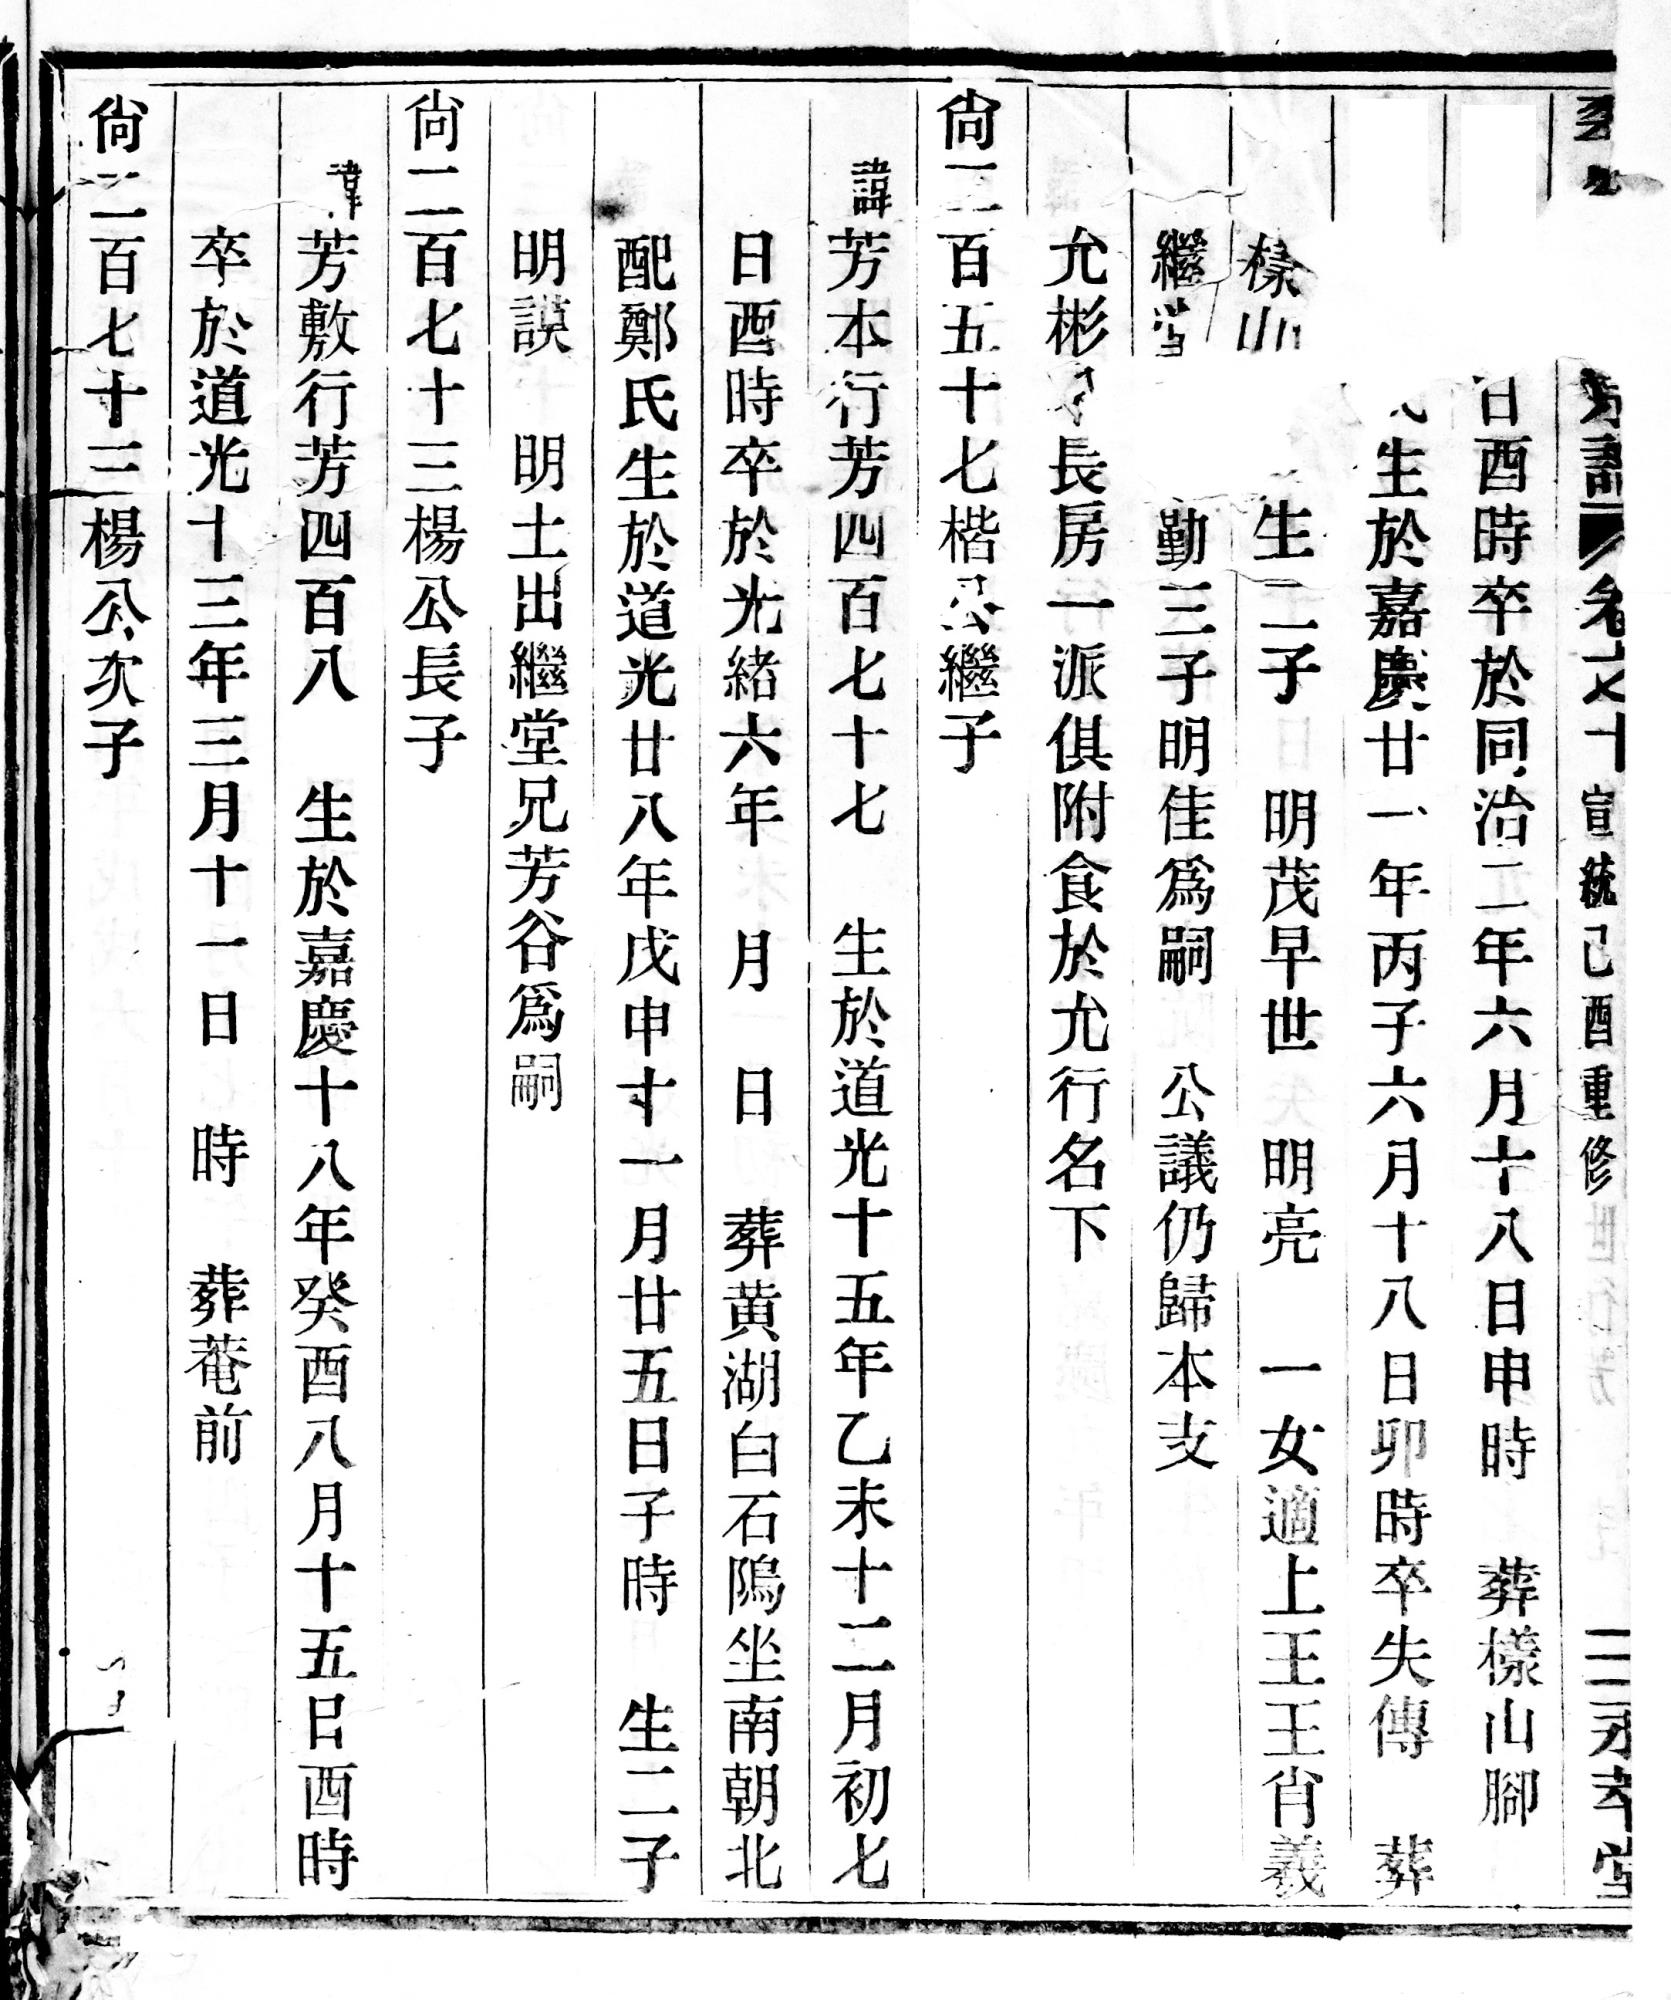 譜 卷之十 宣統己酉重修 三 永孝堂
日酉時卒於同治二年六月十八日申時 葬樣山腳
生於嘉慶廿一年丙子六月十八日卯時卒失傳 葬
樣山 生二子 明茂早世 明亮 一女適上王王肖羲
繼 勤三子明佳爲嗣 公議仍歸本支
允彬 長房一派俱附食於允行名下
尙二百五十七楷公繼子
諱芳本行芳四百七十七 生於道光十五年乙未十二月初七
日酉時卒於光緒六年 月 日 葬黄湖白石隖坐南朝北
配鄭氏生於道光廿八年戊申十一月廿五日子時 生二子
明謨 明土出繼堂兄芳谷爲嗣
尙二百七十三楊公長子
諱芳敷行芳四百八 生於嘉慶十八年癸酉八月十五日酉時
卒於道光十三年三月十一日 時 葬菴前
尙二百七十三楊公次子